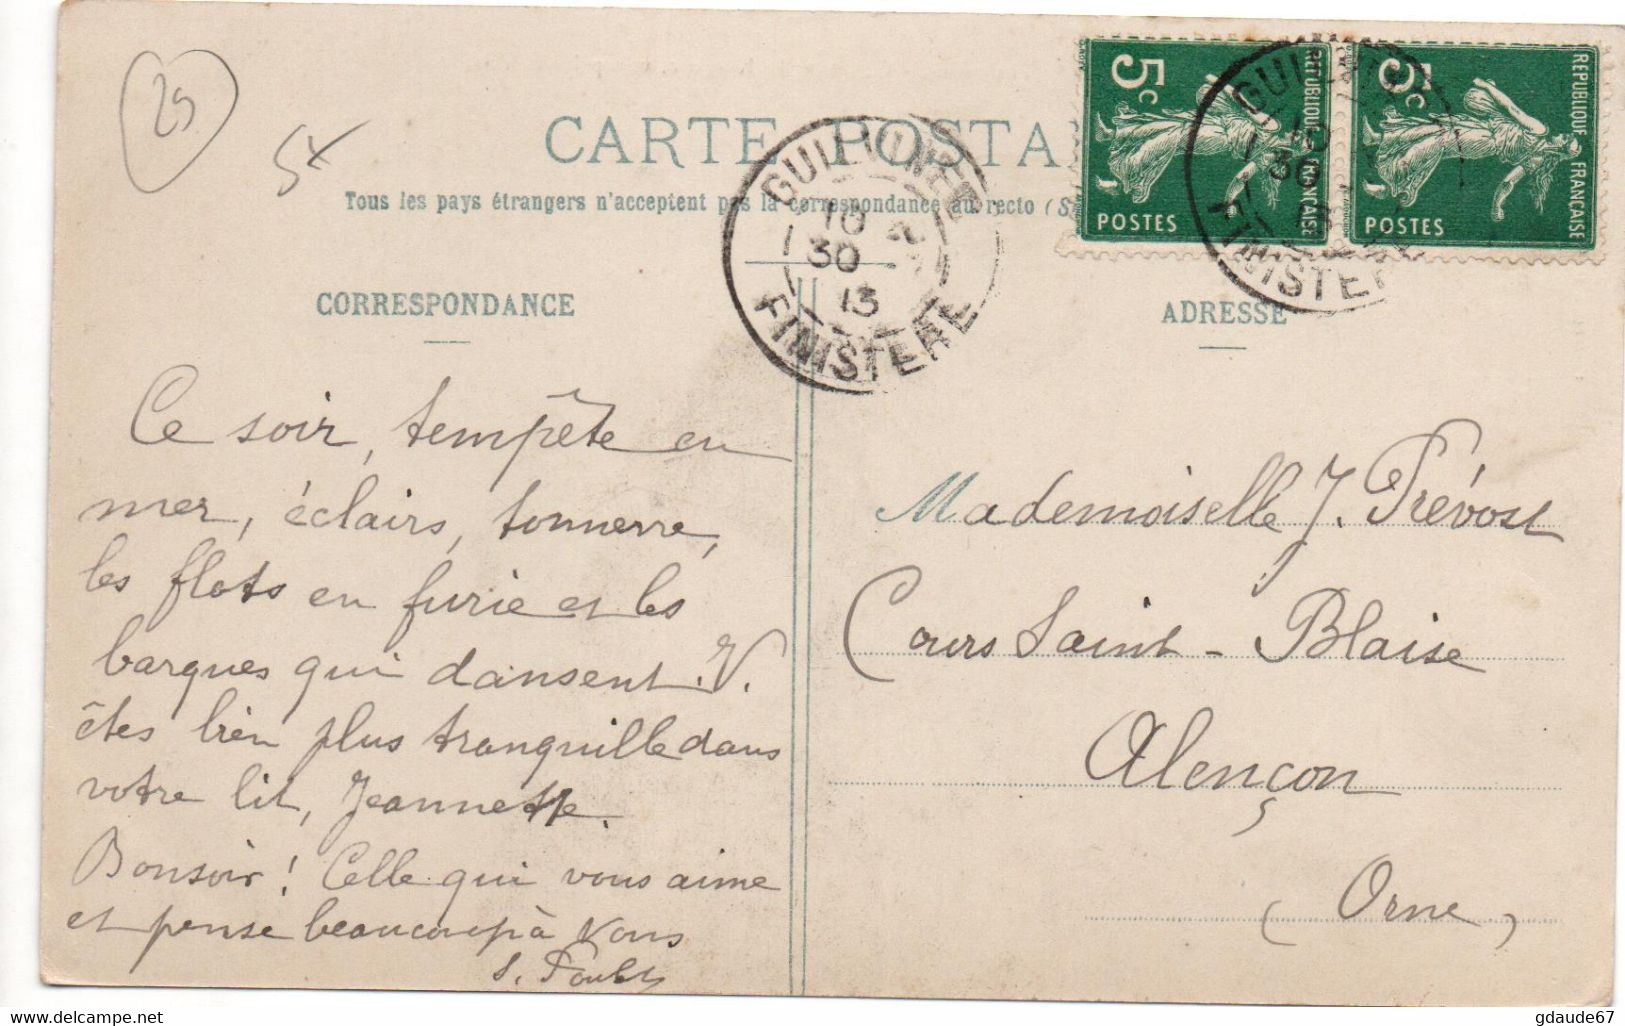 25
5x
CARTE POSTA
Tous les pays étrangers n'acceptent pas la correspondance au recto (S
CORRESPONDANCE
ADRESSE
GUILVINEC
10
30
13
FINISTERE
5c
REPUBLIQUE FRANÇAISE
POSTES
5c
REPUBLIQUE FRANÇAISE
POSTES
10
30
FINISTER
Ce soir, tempête en
mer, éclairs, tonnerre,
les flots en furie et les
barques qui dansent. V.
êtes bien plus tranquille dans
votre lit, Jeannette.
Bonsoir! Celle qui vous aime
et pense beaucoup à vous
Mademoiselle J. Prévost
Cours Saint-Blaise
Alençon
(Orne)
delcampe.net
gdaude67